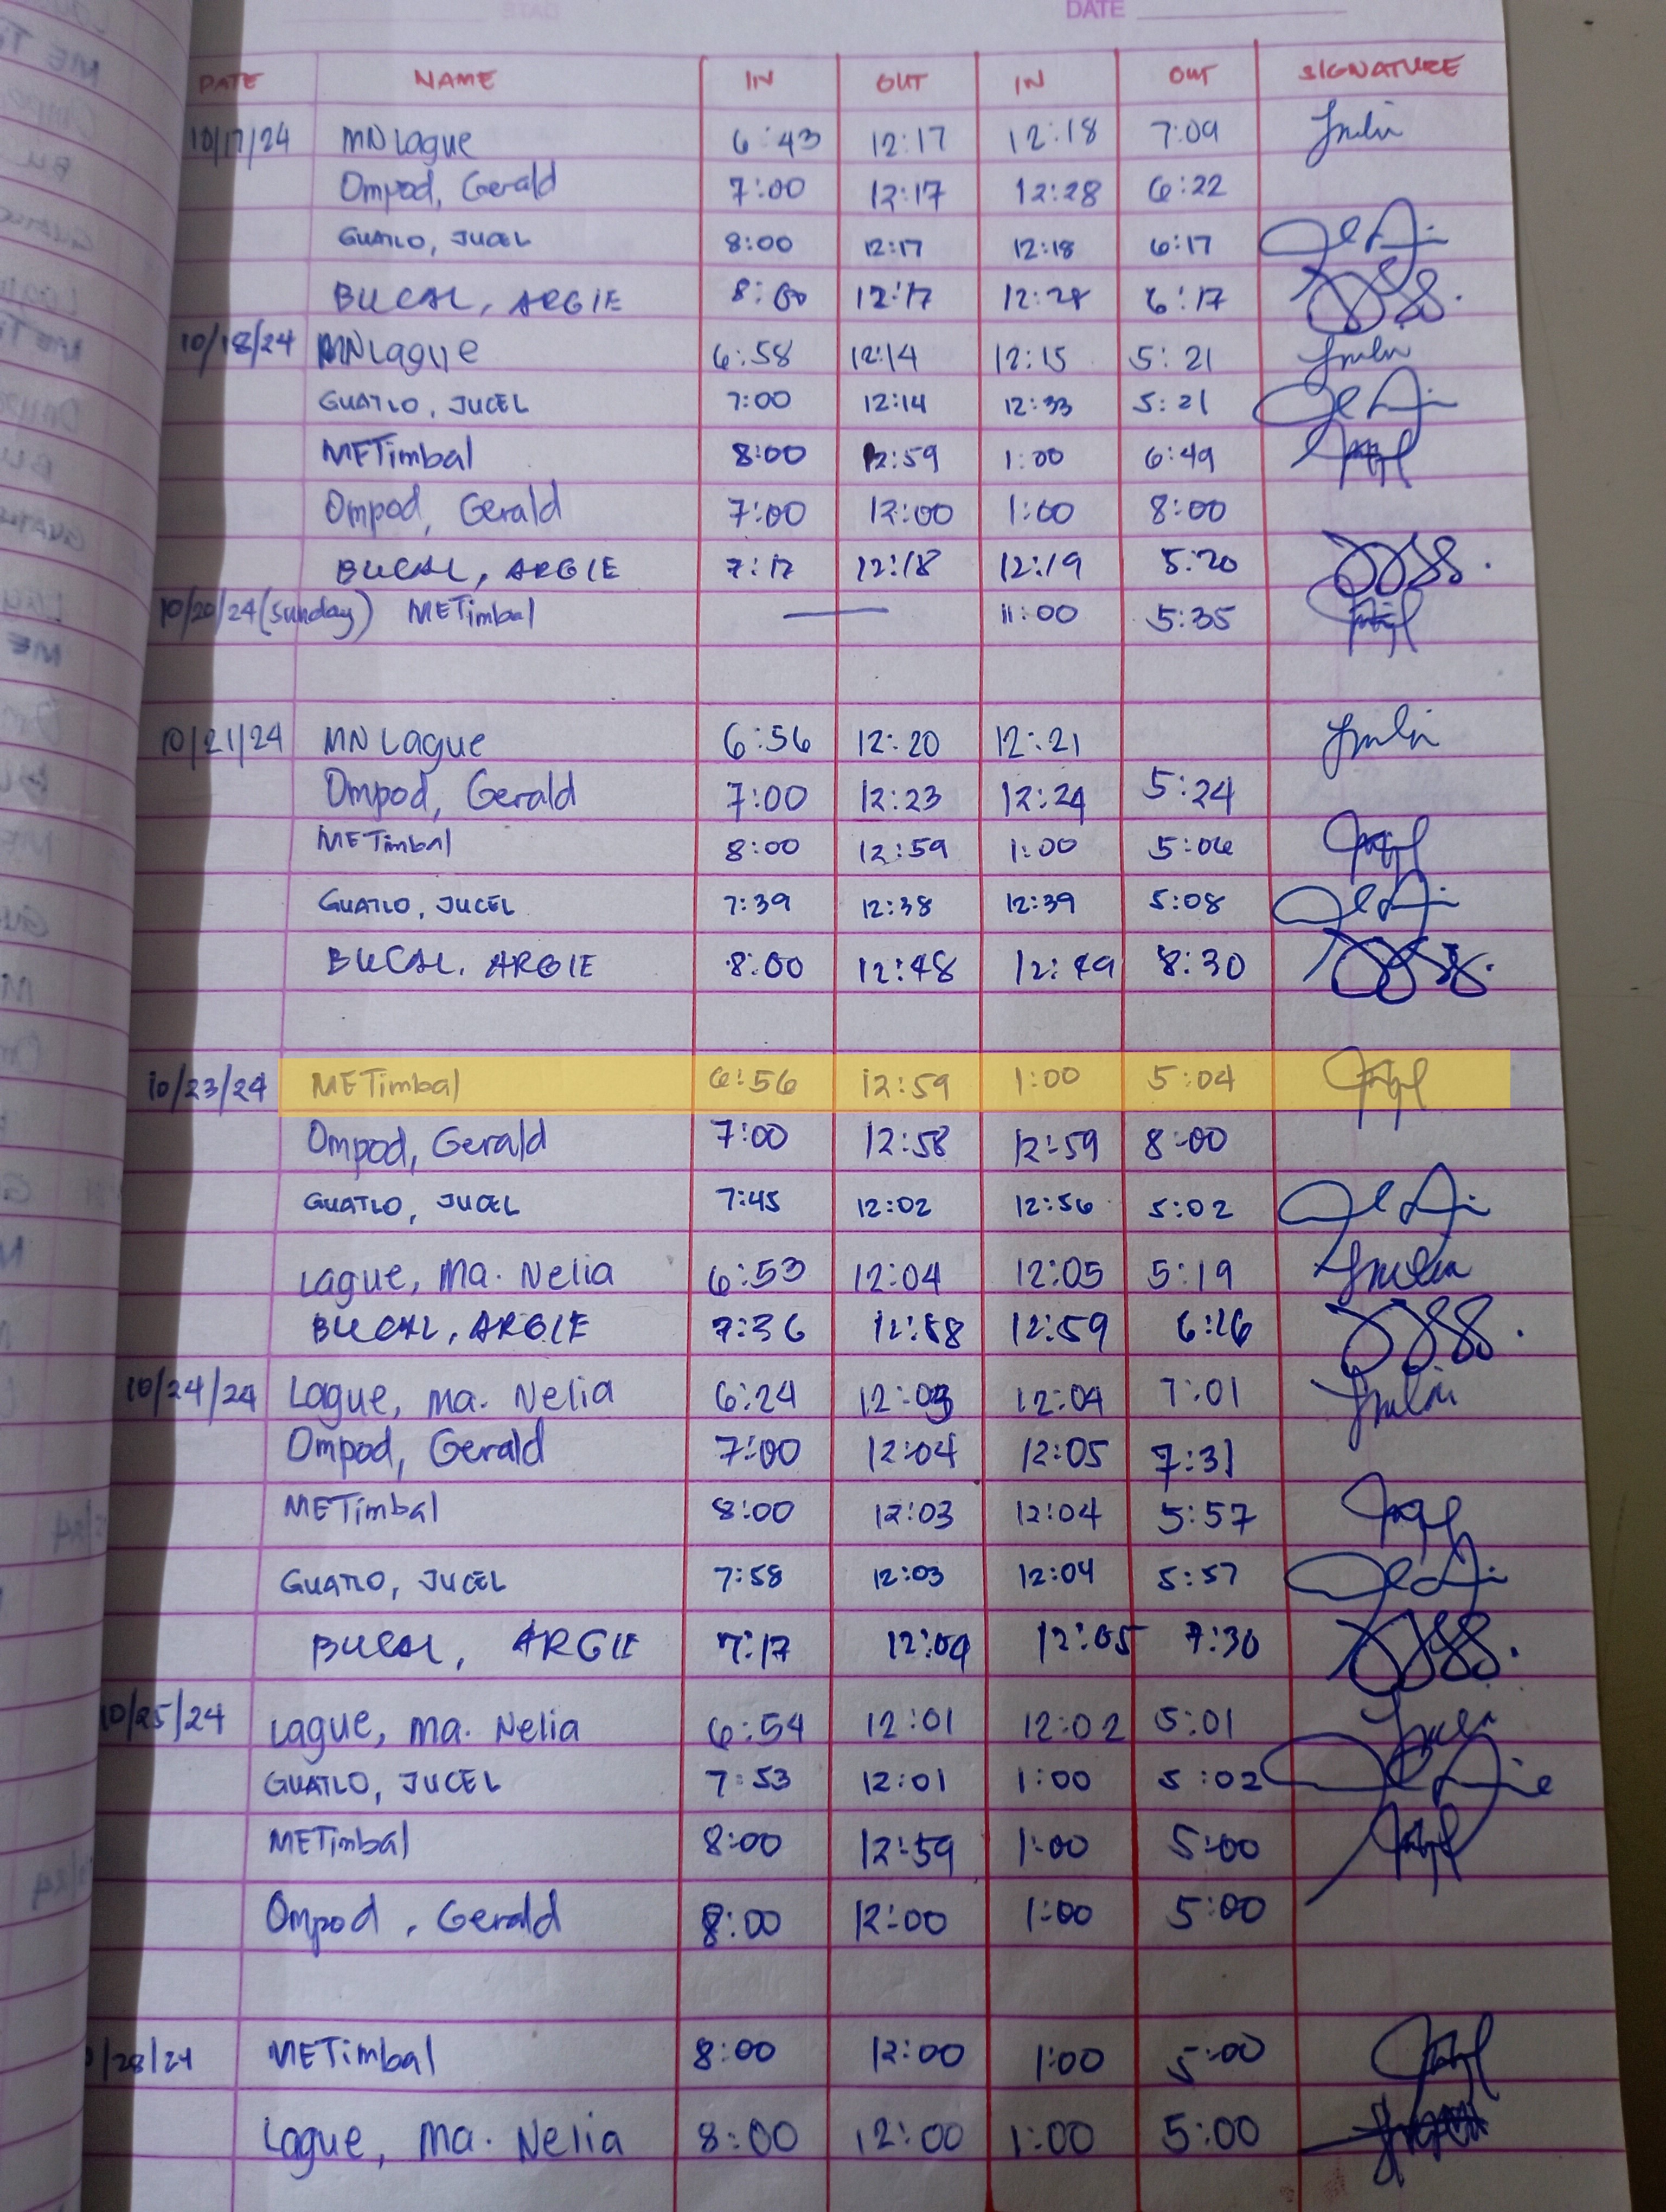 DATE
DATE NAME IN OUT IN OUT SIGNATURE
10/17/24 MN Lague 6:43 12:17 12:18 7:09
Ompod, Gerald 7:00 12:17 12:28 6:22
GUATLO, JUCEL 8:00 12:17 12:18 6:17
BUCAL, ARGIE 8:00 12:17 12:28 6:17
10/18/24 MN Lague 6:58 12:14 12:15 5:21
GUATLO, JUCEL 7:00 12:14 12:33 5:21
METimbal 8:00 12:59 1:00 6:49
Ompod, Gerald 7:00 12:00 1:00 8:00
BUCAL, ARGIE 7:17 12:18 12:19 5:20
10/20/24 (Sunday) METimbal — 11:00 5:35
10/21/24 MN Lague 6:56 12:20 12:21
Ompod, Gerald 7:00 12:23 12:24 5:24
METimbal 8:00 12:59 1:00 5:06
GUATLO, JUCEL 7:39 12:38 12:39 5:08
BUCAL, ARGIE 8:00 12:48 12:49 8:30
10/23/24 METimbal 6:56 12:59 1:00 5:04
Ompod, Gerald 7:00 12:58 12:59 8:00
GUATLO, JUCEL 7:45 12:02 12:56 5:02
Lague, Ma. Nelia 6:53 12:04 12:05 5:19
BUCAL, ARGIE 7:36 12:58 12:59 6:26
10/24/24 Lague, Ma. Nelia 6:24 12:03 12:04 7:01
Ompod, Gerald 7:00 12:04 12:05 7:31
METimbal 8:00 12:03 12:04 5:57
GUATLO, JUCEL 7:58 12:03 12:04 5:57
BUCAL, ARGIE 7:17 12:04 12:05 7:30
10/25/24 Lague, Ma. Nelia 6:54 12:01 12:02 5:01
GUATLO, JUCEL 7:53 12:01 1:00 5:02
METimbal 8:00 12:59 1:00 5:00
Ompod, Gerald 8:00 12:00 1:00 5:00
/28/24 METimbal 8:00 12:00 1:00 5:00
Lague, Ma. Nelia 8:00 12:00 1:00 5:00